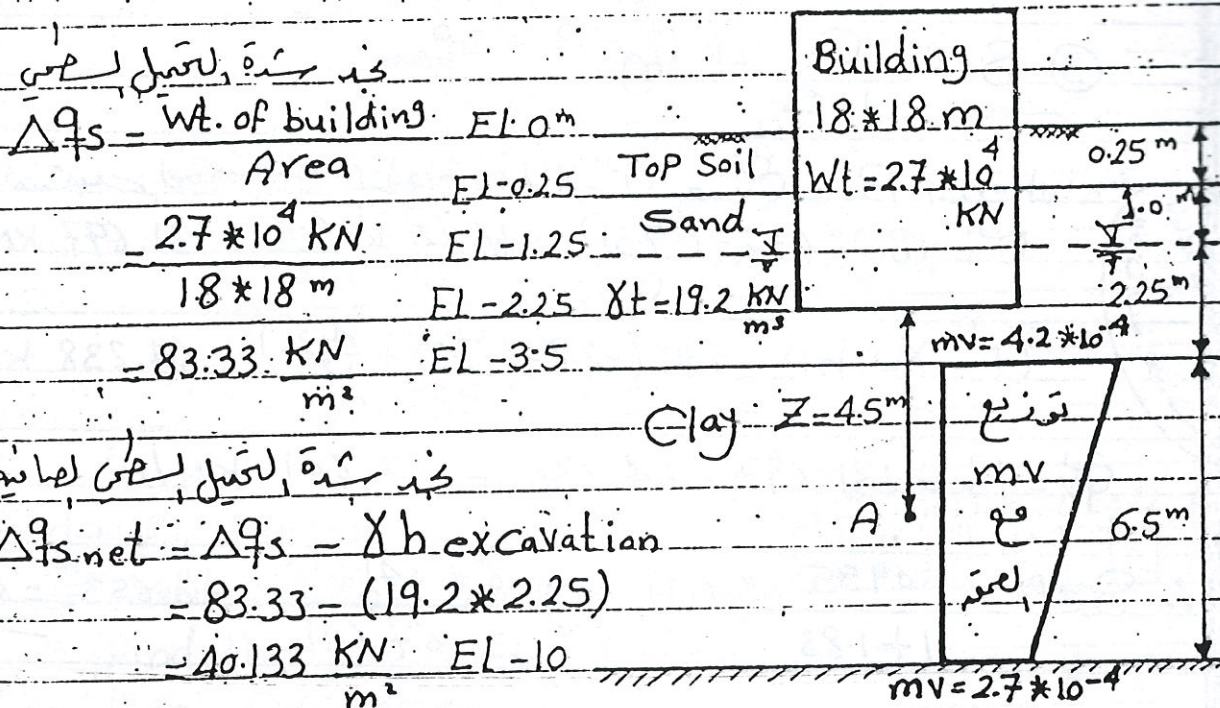 نجد شدة التحميل السطحي
Δqs = Wt. of building / Area
= 2.7*10^4 KN / 18*18 m
= 83.33 KN/m²
نجد شدة التحميل السطحي الصافية
Δqs net = Δqs - γh excavation
= 83.33 - (19.2*2.25)
= 40.133 KN/m²
El. 0 m
El -0.25
El -1.25
El -2.25
El -3.5
El -10
Top Soil
Sand
γt = 19.2 KN/m³
Clay
Z = 4.5 m
A
Building
18*18 m
Wt = 2.7*10^4 KN
0.25 m
1.0 m
2.25 m
6.5 m
mv = 4.2*10^-4
توزيع
mv
مع
العمق
mv = 2.7*10^-4